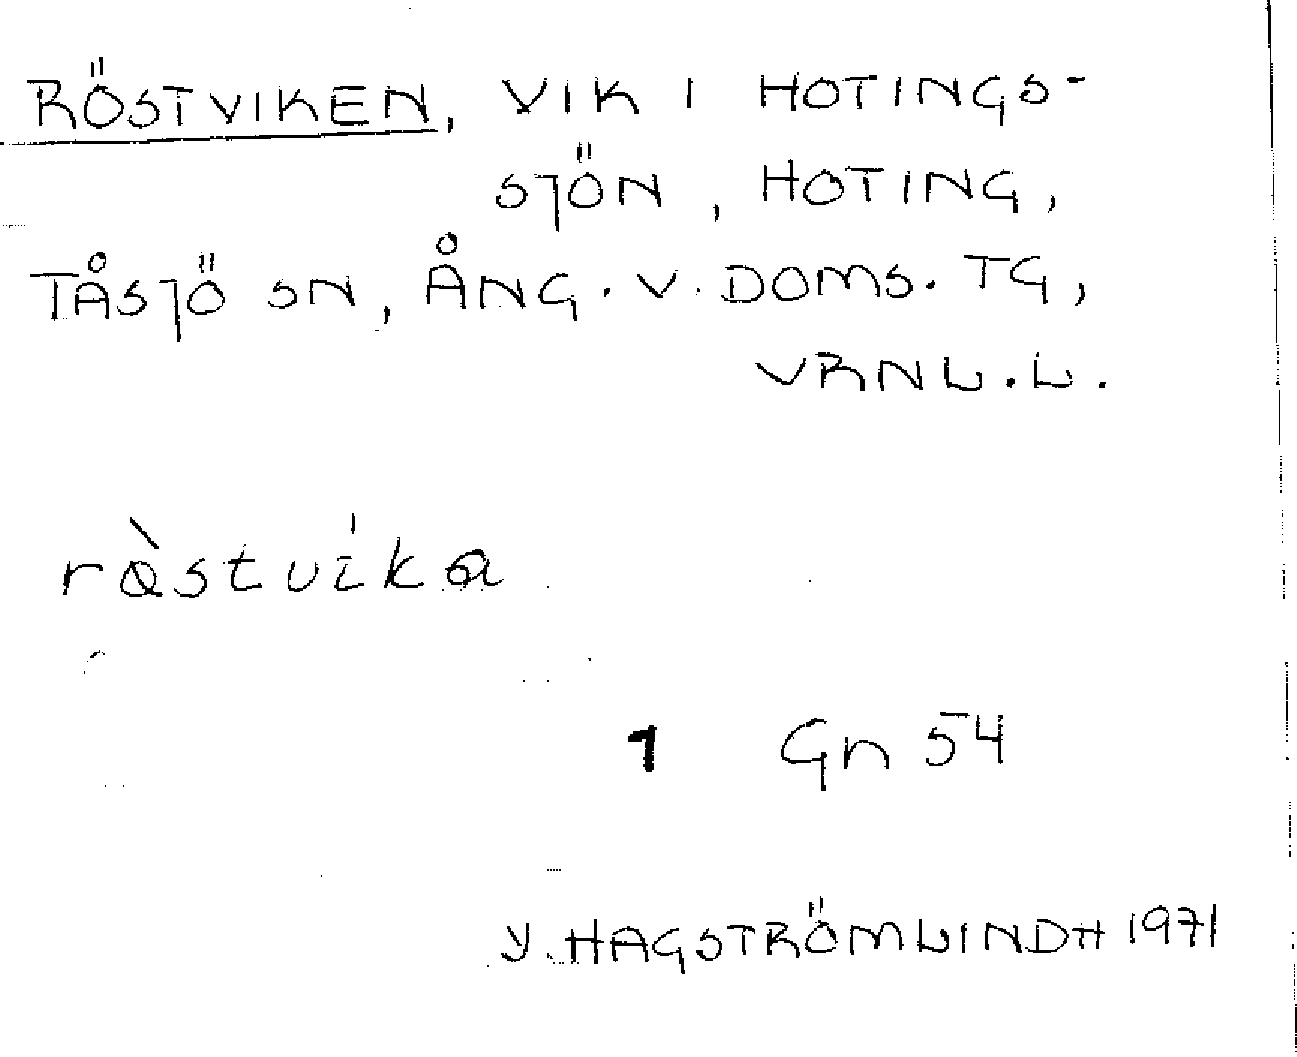 RÖSTVIKEN, VIK I HOTINGS-
SJÖN, HOTING,
TÅSJÖ SN, ÅNG. V. DOMS. TG,
VRNL. L.
ròstvika
1 Gn 54
Y. HAGSTRÖM LINDH 1971